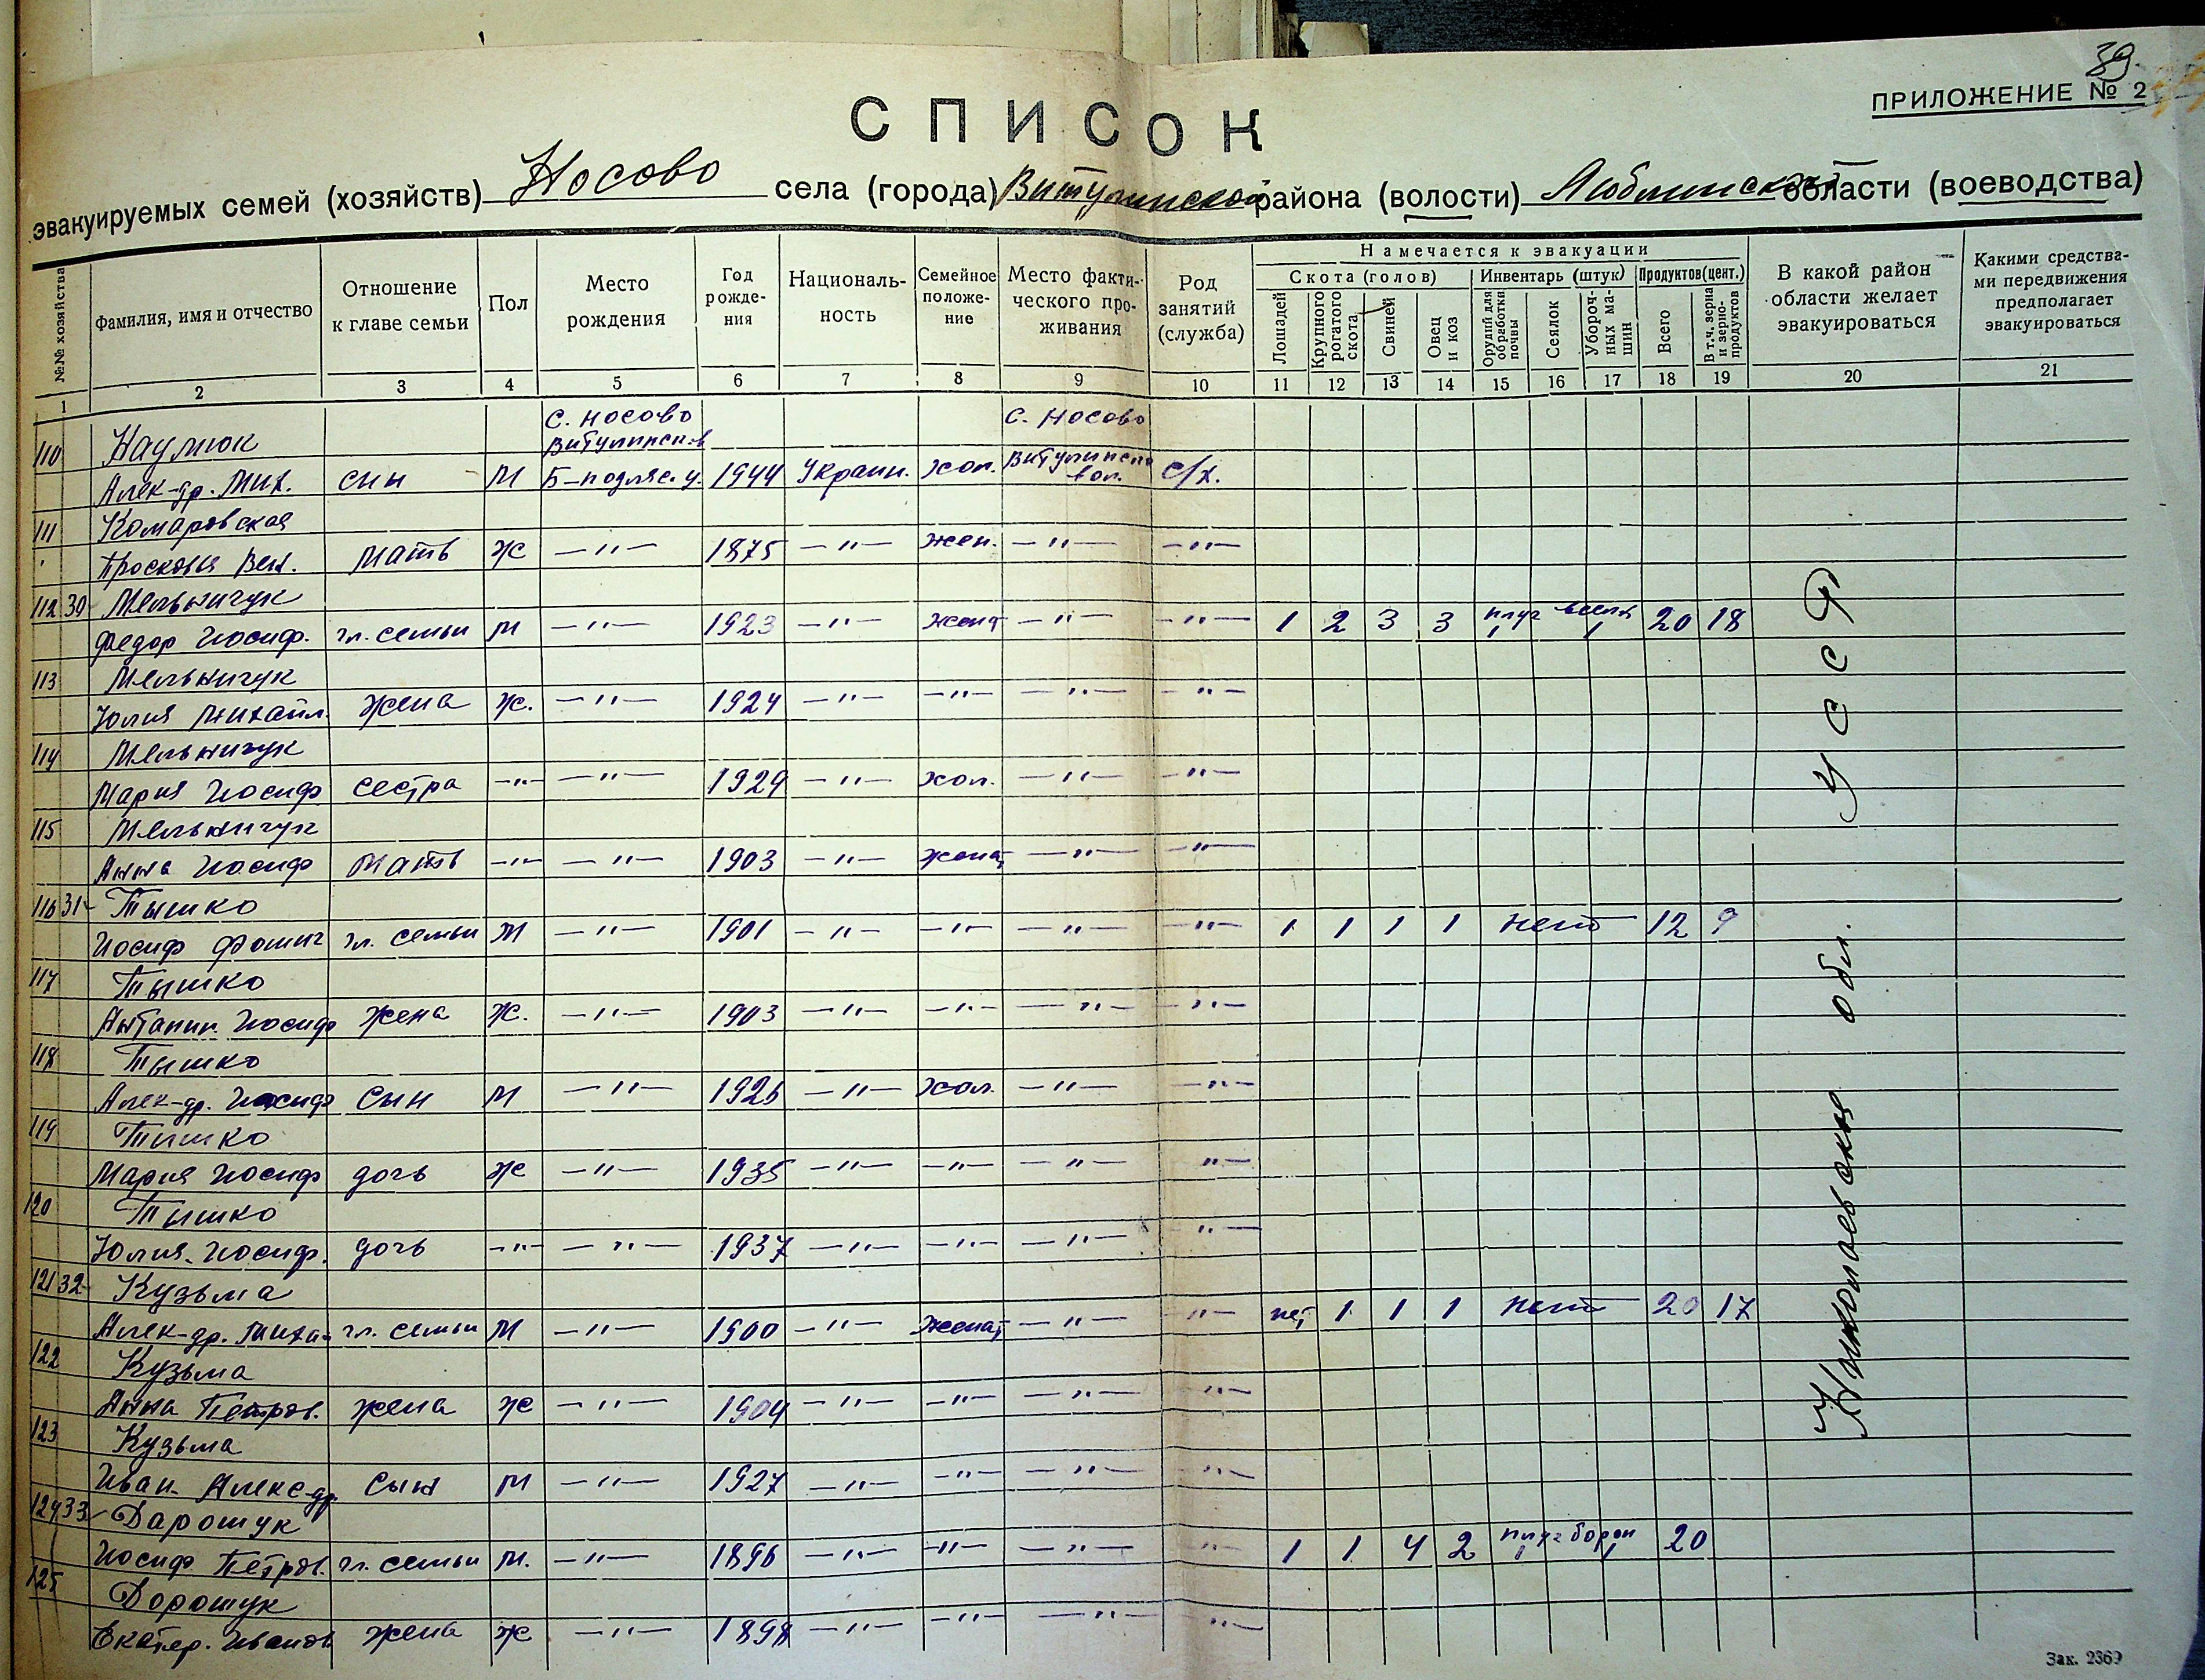 39
ПРИЛОЖЕНИЕ № 2
СПИСОК
эвакуируемых семей (хозяйств) Носово села (города) Витулинской района (волости) Люблинской области (воеводства)
№№ хозяйства
Фамилия, имя и отчество
Отношение к главе семьи
Пол
Место рождения
Год рожде-ния
Националь-ность
Семейное положе-ние
Место факти-ческого про-живания
Род занятий (служба)
Намечается к эвакуации
Скота (голов)
Инвентарь (штук)
Продуктов (цент.)
Лошадей
Крупного рогатого скота
Свиней
Овец и коз
Орудий для обработки почвы
Сеялок
Убороч-ных ма-шин
Всего
В т.ч. зерна и зерно-продуктов
В какой район области желает эвакуироваться
Какими средства-ми передвижения предполагает эвакуироваться
1 2 3 4 5 6 7 8 9 10 11 12 13 14 15 16 17 18 19 20 21
С. Носово С. Носово
110 Наумюк Витулинск.в
Алек-др. Мих. сын М Б-подляс. у. 1944 Украин. хол. Витулинско вол. с/х.
111 Комаровская
Просковья Вик. мать ж —"— 1875 —"— жен. —"— —"—
112 30 Мельничук
Федор Иосиф. гл. семьи М —"— 1923 —"— женат —"— —"— 1 2 3 3 плуг 1 1 20 18
113 Мельничук
Юлия Михайл. жена ж. —"— 1924 —"— —"— —"— —"—
114 Мельничук
Мария Иосиф сестра —"— —"— 1929 —"— хол. —"— —"—
115 Мельничук
Анна Иосиф мать —"— —"— 1903 —"— женат —"— —"—
116 31 Тышко
Иосиф Фомич гл. семьи М —"— 1901 —"— —"— —"— —"— 1 1 1 1 нет 12 9
117 Тышко
Антанин. Иосиф жена ж. —"— 1903 —"— —"— —"— —"—
118 Тышко
Алек-др. Иосиф сын М —"— 1926 —"— хол. —"— —"—
119 Тышко
Мария Иосиф дочь ж —"— 1935 —"— —"— —"— —"—
120 Тышко
Юлия Иосиф. дочь —"— —"— 1937 —"— —"— —"— —"—
121 32 Кузьма
Алек-др. Михаи гл. семьи М —"— 1900 —"— женат —"— —"— нет 1 1 1 нет 20 17
122 Кузьма
Анна Петров. жена ж —"— 1904 —"— —"— —"— —"—
123 Кузьма
Иван Алекс-др. сын М —"— 1927 —"— —"— —"— —"—
124 33 Дарошук
Иосиф Петров. гл. семьи М. —"— 1896 —"— —"— —"— —"— 1 1 4 2 плуг 1 борон 1 20
125 Дорошук
Екатер. Иванов жена ж —"— 1898 —"— —"— —"— —"—
Николаевская обл. УССР
Зак. 2369